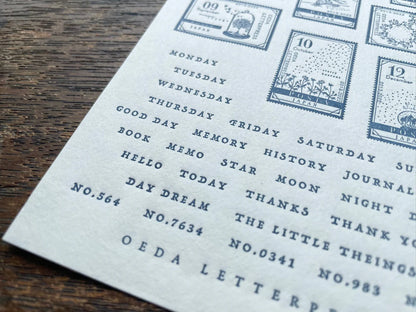 09
JAPAN
10
JAPAN
12
MONDAY
TUESDAY
WEDNESDAY
THURSDAY FRIDAY SATURDAY SU
GOOD DAY MEMORY HISTORY JOURNAL
BOOK MEMO STAR MOON NIGHT
HELLO TODAY THANKS THANK YO
DAY DREAM THE LITTLE THEINGS
NO.564 NO.7634 NO.0341 NO.983
OEDA LETTERPR